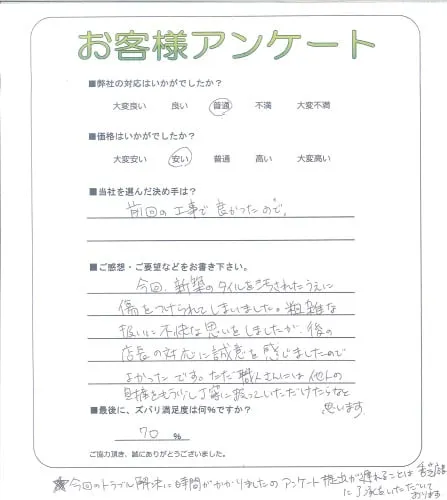 お客様アンケート
■弊社の対応はいかがでしたか?
大変良い 良い 普通 不満 大変不満
■価格はいかがでしたか?
大変安い 安い 普通 高い 大変高い
■当社を選んだ決め手は?
前回の工事で良かったので。
■ご感想・ご要望などをお書き下さい。
今回、新築のタイルを汚されたうえに
傷をつけられてしまいました。粗雑な
扱いに不快な思いをしましたが、後の
店長の対応に誠意を感じましたので
よかったです。ただ職人さんには他人の
目線をもう少し丁寧に扱っていただけたらなと
思います。
■最後に、ズバリ満足度は何%ですか?
70 %
ご協力頂き、誠にありがとうございました。
★今回のトラブル解決に時間がかかりましたのアンケート提出が遅れることは
に了承をいただいて
おります